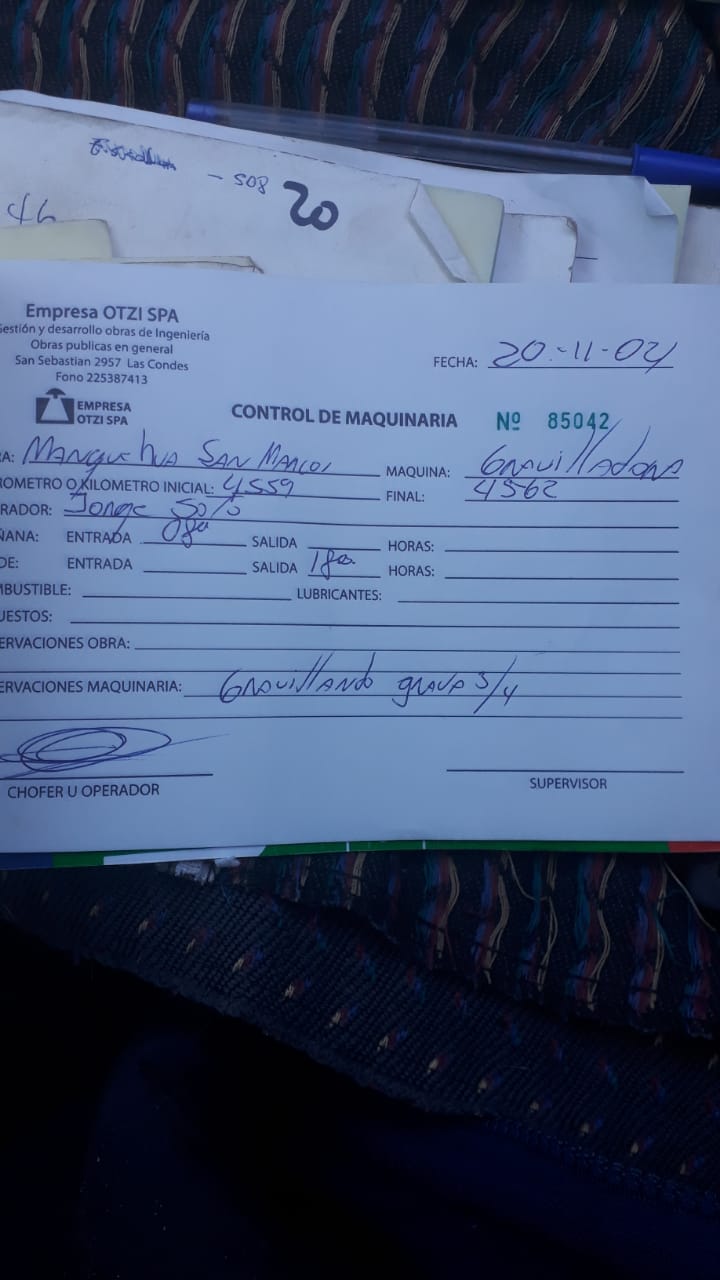 - 508 20
46
Empresa OTZI SPA
Gestión y desarrollo obras de Ingeniería
Obras publicas en general
San Sebastian 2957 Las Condes
Fono 225387413
FECHA: 20-11-04
EMPRESA
OTZI SPA
CONTROL DE MAQUINARIA Nº 85042
RA: Manquehua San Marcos MAQUINA: Gravilladora
ROMETRO O KILOMETRO INICIAL: 4559 FINAL: 4562
RADOR: Jorge Soto
ÑANA: ENTRADA 08 SALIDA HORAS:
DE: ENTRADA SALIDA 18 HORAS:
MBUSTIBLE: LUBRICANTES:
UESTOS:
ERVACIONES OBRA:
ERVACIONES MAQUINARIA: Gravillando grava 3/4
CHOFER U OPERADOR SUPERVISOR